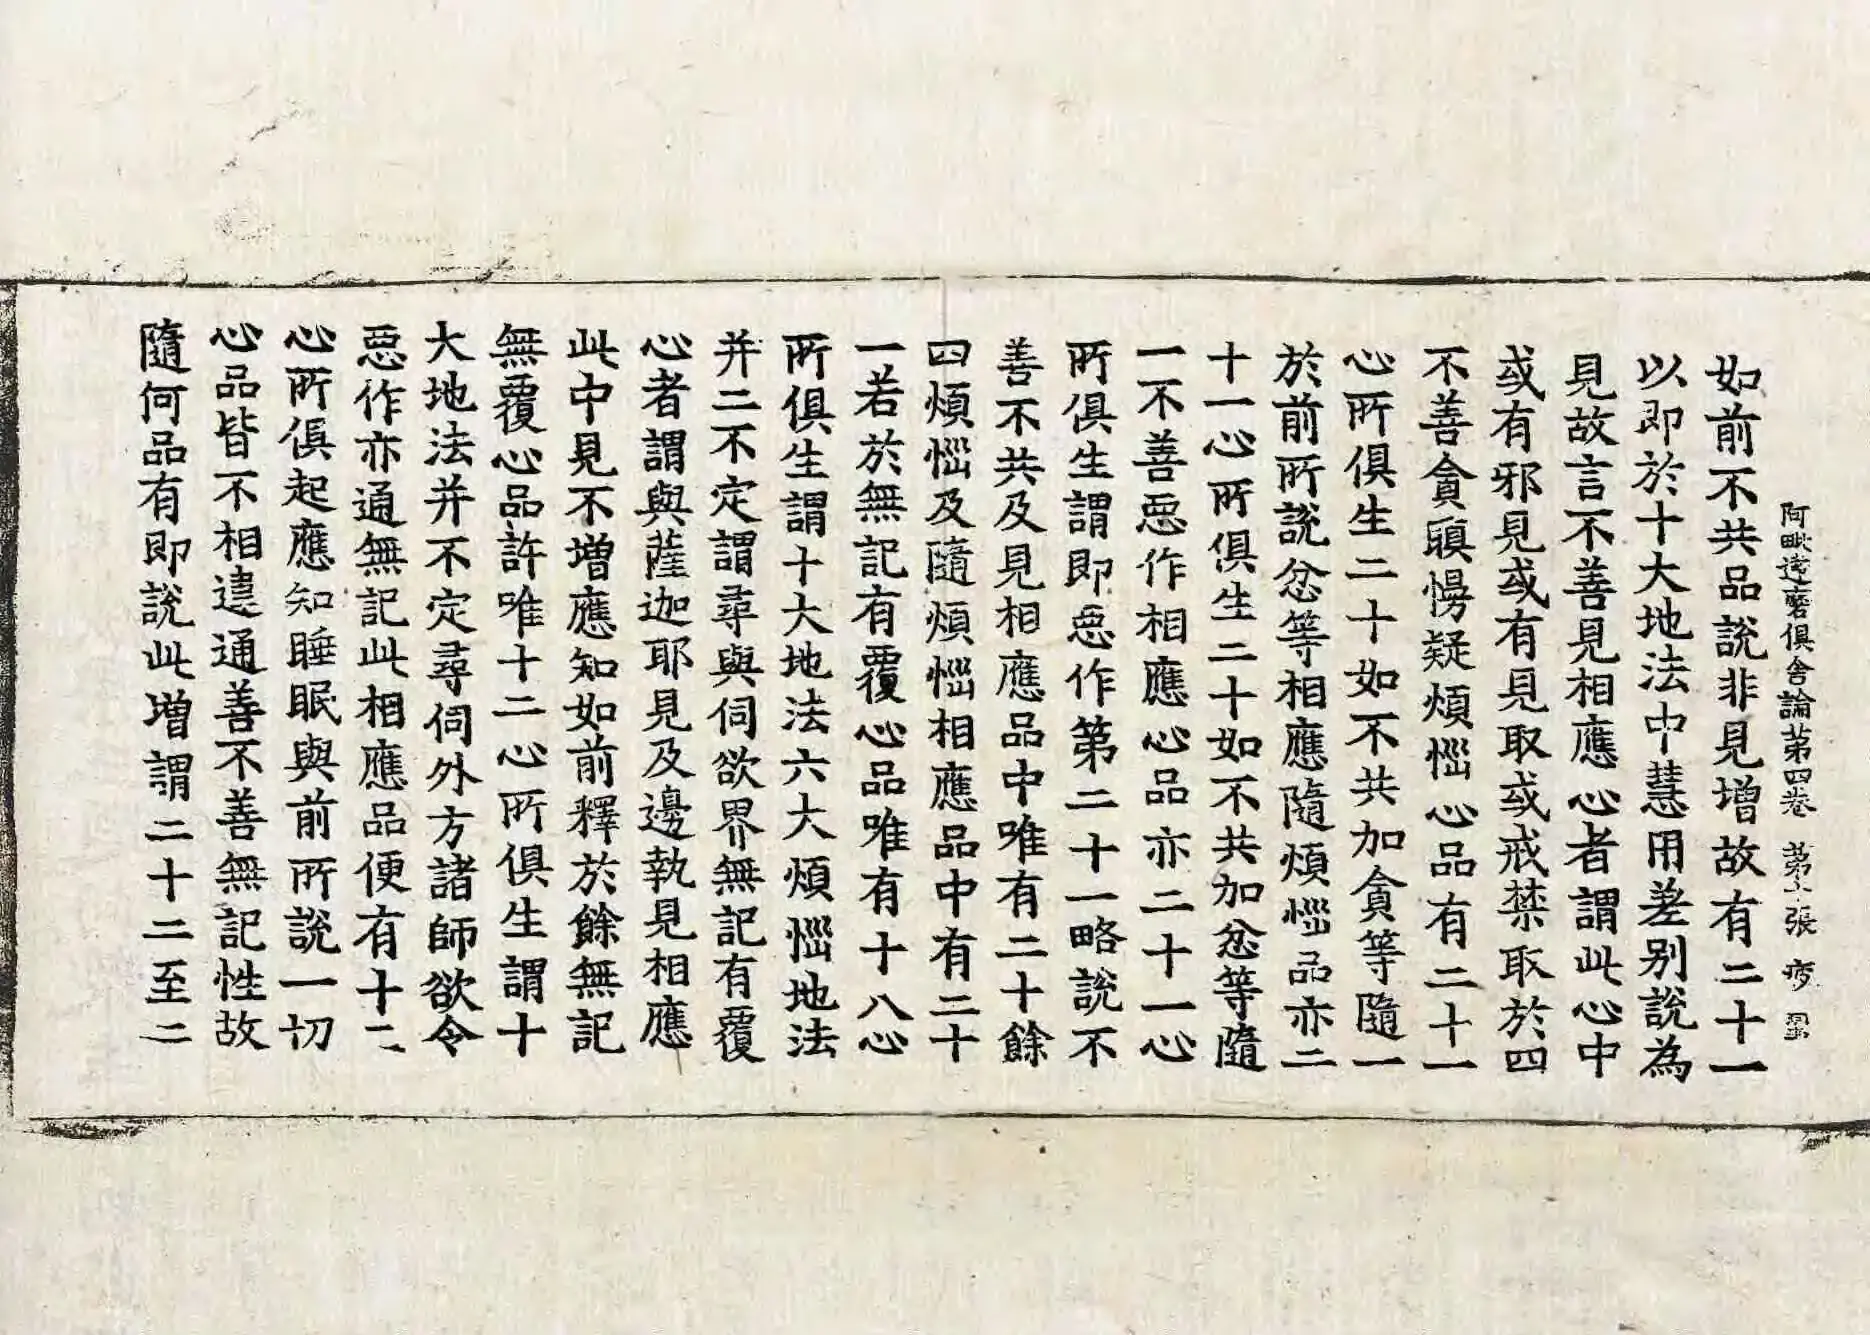 阿毗達磨俱舍論第四卷 第十張 疲
如前不共品說非見增故有二十一
以即於十大地法中慧用差别說為
見故言不善見相應心者謂此心中
或有邪見或有見取或戒禁取於四
不善貪瞋慢疑煩惱心品有二十一
心所俱生二十如不共加貪等隨一
於前所說忿等相應隨煩惱品亦二
十一心所俱生二十如不共加忿等隨
一不善惡作相應心品亦二十一心
所俱生謂即惡作第二十一略說不
善不共及見相應品中唯有二十餘
四煩惱及隨煩惱相應品中有二十
一若於無記有覆心品唯有十八心
所俱生謂十大地法六大煩惱地法
并二不定謂尋與伺欲界無記有覆
心者謂與薩迦耶見及邊執見相應
此中見不增應知如前釋於餘無記
無覆心品許唯十二心所俱生謂十
大地法并不定尋伺外方諸師欲令
惡作亦通無記此相應品便有十二
心所俱起應知睡眠與前所說一切
心品皆不相違通善不善無記性故
隨何品有即說此增謂二十二至二